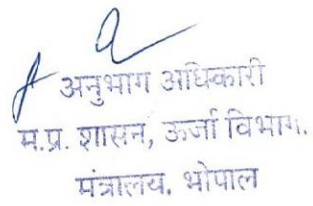 अनुभाग अधिकारी
म.प्र. शासन, ऊर्जा विभाग.
मंत्रालय. भोपाल